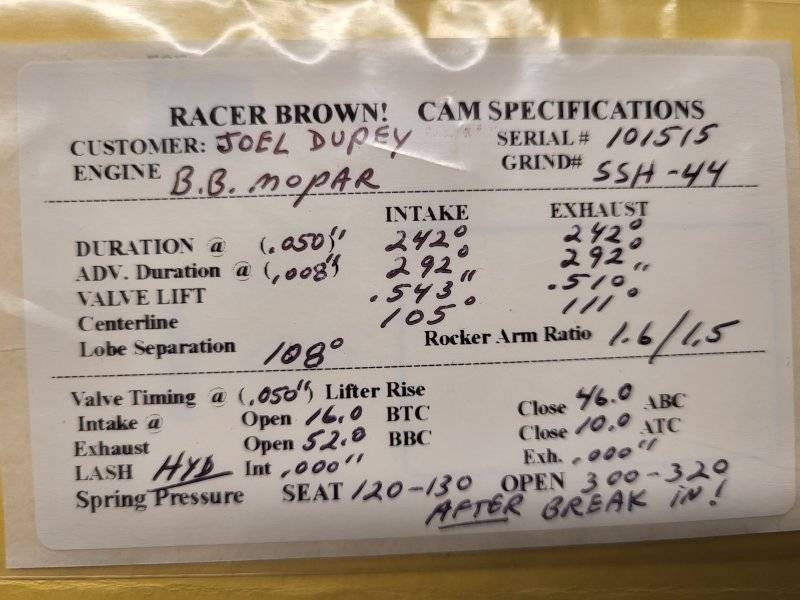 RACER BROWN! CAM SPECIFICATIONS
CUSTOMER: JOEL DUPEY SERIAL # 101515
ENGINE B.B. MOPAR GRIND# SSH-44
INTAKE EXHAUST
DURATION @ (.050)" 242° 242°
ADV. Duration @ (,008") 292° 292°
VALVE LIFT .543" .510"
Centerline 105° 111°
Lobe Separation 108° Rocker Arm Ratio 1.6/1.5
Valve Timing @ (.050") Lifter Rise
Intake @ Open 16.0 BTC Close 46.0 ABC
Exhaust Open 52.0 BBC Close 10.0 ATC
LASH HYD Int ,000" Exh. .000"
Spring Pressure SEAT 120-130 OPEN 300-320
AFTER BREAK IN!